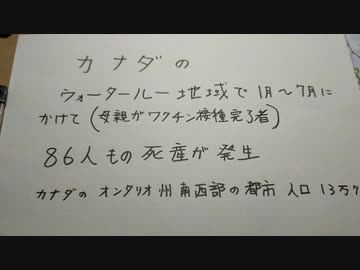 カナダの
ウォータールー地域で1月〜7月に
かけて(母親がワクチン接種完了者)
86人もの死産が発生
カナダのオンタリオ州南西部の都市 人口13万